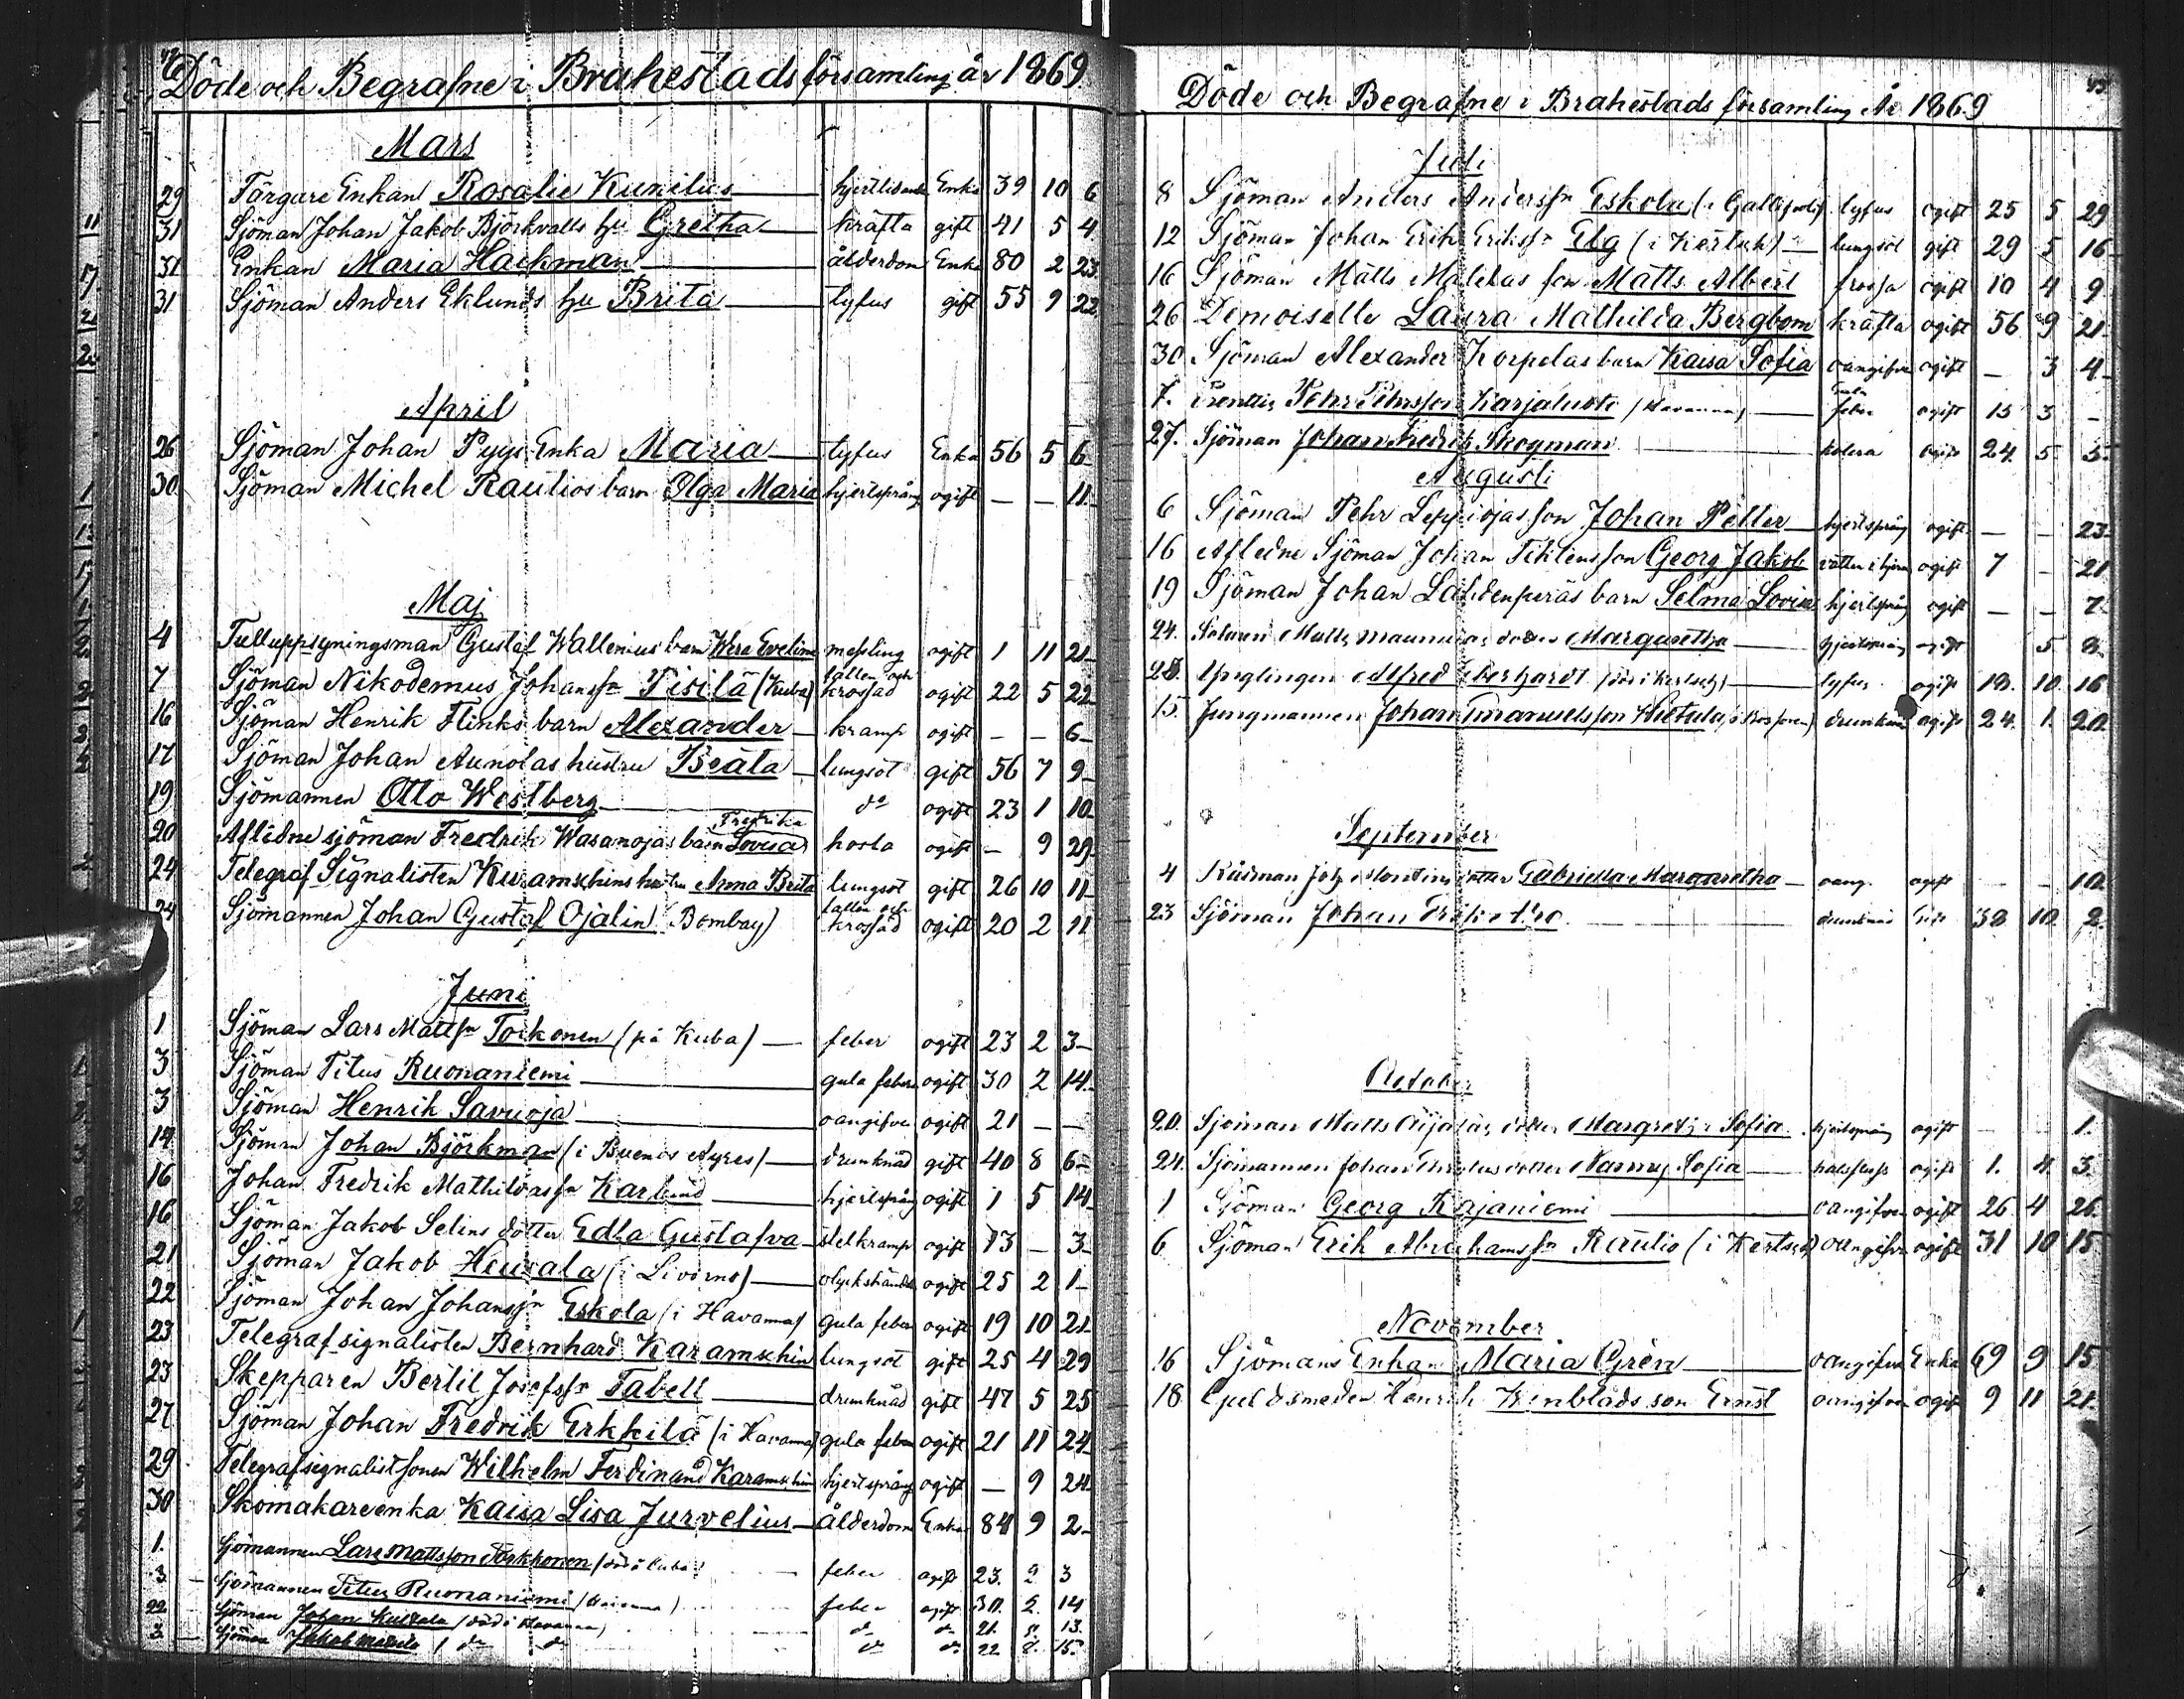 42
Döde och Begrafne i Brahestads församling år 1869
Mars
29 Färgare Enkan Rosalie Kunelius Enka 39 10 6
31 Sjöman Johan Jakob Björkvalls hu Gretha kräfta gift 41 5 4
31 Enkan Maria Hackman ålderdom Enka 80 2 23
31 Sjöman Anders Eklunds hu Brita tyfus gift 55 9 22
April
26 Sjöman Johan Pyys Enka Maria tyfus Enka 56 5 6
30 Sjöman Michel Rautios barn Olga Maria hjertsprång ogift — — 11
Maj
4 Tulluppsyningsman Gustaf Wallenius barn Wera Evelina messling ogift 1 11 21
7 Sjöman Nikodemus Johanss:n Tisilä (Kuba) fallen och krossad ogift 22 5 22
16 Sjöman Henrik Flinks barn Alexander kramp ogift — — 6
17 Sjöman Johan Aunolas hustru Beata lungsot gift 56 7 9
19 Sjömannen Otto Westberg d:o ogift 23 1 10
20 Aflidne sjöman Fredrik Wasanojas barn Fredrika Lovisa hosta ogift — 9 29
24 Telegraf Signalisten Karamschins hustru Anna Brita lungsot gift 26 10 11
24 Sjömannen Johan Gustaf Ojalin (Bombay) fallen och krossad ogift 20 2 11
Juni
1 Sjöman Lars Mattss:n Torkonen (på Kuba) feber ogift 23 2 3
3 Sjöman Titus Ruonaniemi gula febern ogift 30 2 14
3 Sjöman Henrik Savuoja oangifven ogift 21 — —
14 Sjöman Johan Björkman (i Buenos Ayres) drunknad gift 40 8 6
16 Johan Fredrik Mathildass:n Karlund hjertsprång ogift 1 5 14
16 Sjöman Jakob Selins dotter Edla Gustafva stelkramp ogift 13 — 3
21 Sjöman Jakob Heusala (i Livorno) olyckshändelse ogift 25 2 1
22 Sjöman Johan Johanss:n Eskola (i Havanna) gula feber ogift 19 10 21
23 Telegraf signalisten Bernhard Karamschin lungsot gift 25 4 29
23 Skepparen Bertil Josefss:n Fabell drunknad gift 47 5 25
27 Sjöman Johan Fredrik Erkkilä (i Havanna) gula febern ogift 21 11 24
29 Telegrafsignalistsonen Wilhelm Ferdinand Karamschin hjertsprång ogift — 9 24
30 Skomakareenka Kaisa Lisa Jurvelius ålderdom Enka 84 9 2
1. Sjömannen Lars Mattsson Torkkonen (död å Cuba) feber ogift 23. 2 3
3. Sjömannen Titus Ruonaniemi (Havanna) feber ogift 30. 2. 14
22 Sjöman Johan (död i Havanna) d:o d:o 21. 13.
3. Sjöman Jakob d:o d:o d:o d:o 22 8. 15.
43.
Döde och Begrafne i Brahestads församling År 1869
Juli
8 Sjöman Anders Anderss:n Eskola (i Gallipoli) tyfus ogift 25 5 29
12 Sjöman Johan Erik Erikss:n Elg (i Kertsch) lungsot gift 29 5 16
16 Sjöman Matts son Matts Albert frossa ogift 10 4 9
26 Demoiselle Laura Mathilda Bergbom kräfta ogift 56 9 21
30 Sjöman Alexander Korpelas barn Kaisa Sofia oangifven ogift — 3 4
7. Pehr Pehrsson Karjaluoto (Havanna) Gula feber ogift 15 3 —
27. Sjöman Johan Fredrik Skogman kolera ogift 24. 5 5.
Augusti
6 Sjöman Pehr Leppiojas son Johan Petter hjertsprång ogift — — 23
16 Aflidne Sjöman Johan son Georg Jakob ogift 7 — 21
19 Sjöman Johan Lahdenperäs barn Selma Lovisa hjertsprång ogift — — 7
24. Matts dotter Margaretha hjertsprång ogift 5 8.
28. Ynglingen Alfred Eberhardt (död i Kertsch) tyfus ogift 18. 10. 16
15. Jungmannen Johan Emanuelsson Hietala drunknad ogift 24. 1. 20.
September
4 Rådman Joh. Montins dotter Gabriella Margaretha oang. ogift — — 10.
23 Sjöman Johan drunknad Gift 38 10. 2.
October
20. Sjöman Matts Äijäläs dotter Margretha Sofia hjertsprång ogift — — 1.
24. Sjömannen Johan dotter Nanny Sofia ogift 1. 4. 3.
1 Sjöman Georg Kajaniemi oangifven ogift 26 4 26.
6 Sjöman Erik Abrahamss:n Rautio (i Kertsch) oangifven ogift 31 10 15
November
16 Sjömans Enkan Maria Grén oangifven Enka 69 9 15
18 Guldsmeden Henrik Wenblads son Ernst oangifven ogift 9 11 21